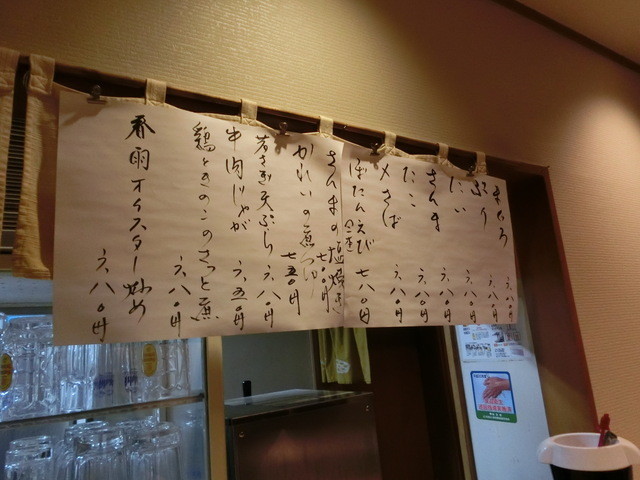 まぐろ 六八〇円
ぶり 六八〇円
たい 六八〇円
さんま 六八〇円
たこ 六八〇円
〆さば 六八〇円
ぼたんえび 七八〇円
さんまの塩焼き 七〇〇円
かれいの煮つけ 七五〇円
若さぎ天ぷら 六八〇円
牛肉じゃが 六五〇円
鶏ときのこのさっと煮 六八〇円
春雨オイスター炒め 六八〇円